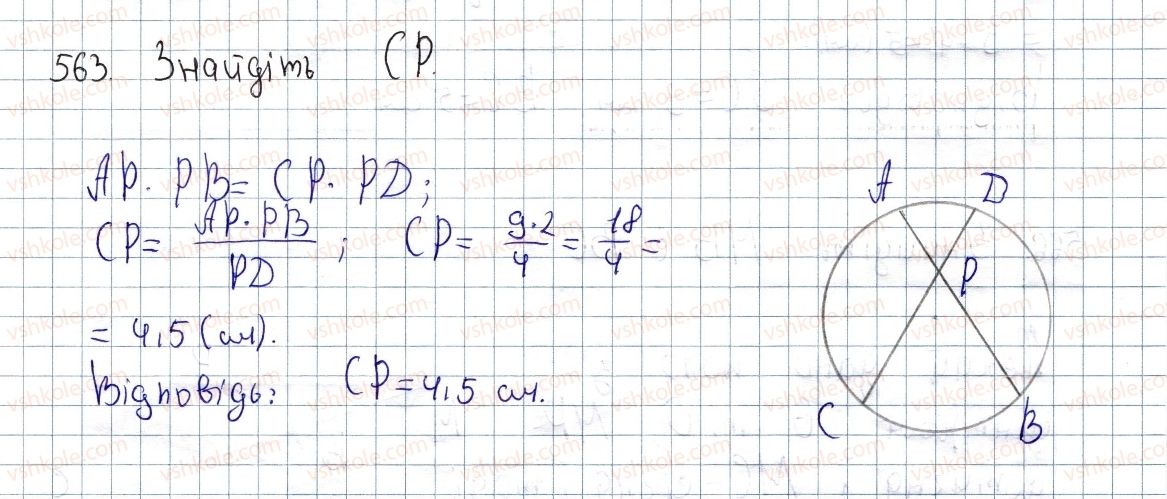 563. Знайдіть CP.
AP · PB = CP · PD;
CP = AP · PB / PD; CP = 9·2 / 4 = 18 / 4 =
= 4,5 (см).
Відповідь: CP = 4,5 см.
A D
P
C B
vshkole.com